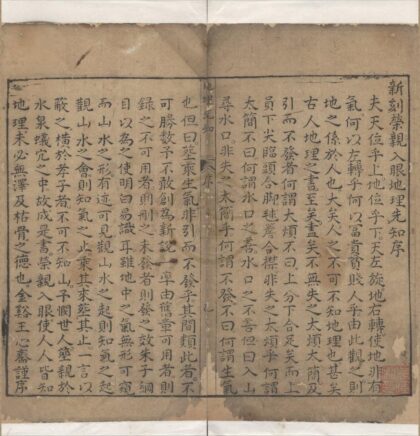 新刻榮親入眼地理先知序
夫天位乎上地位乎下天左旋地右轉使地非有
氣何以左轉乎何以富貴貧賤人乎由此觀之則
地之係於人也大矣人之不可不知地理也甚矣
古人地理之書至矣盡矣不無失之太煩太簡及
引而不發者何謂太煩不曰上分下合足矣而上
員下尖臨頭合脚毬簷合襟非失之太煩乎何謂
太簡不曰何謂水口之善水口之不善但曰入山
尋水口非失之太簡乎何謂不發不曰何謂生氣
也但曰塟乘生氣非引而不發乎其間類此者不
可勝數予不敢創為新說一準由舊章可用者則
錄之不可用者則刪之未發者則發之效朱子綱
目以為之使明白易識耳雖地中之氣無形可窺
而山水之形有迹可見觀山水之起則知氣之起
觀山水之會則知氣之止乘其來塟其止一言以
蔽之橫於孝子者不可不知山乎閱世人塟親於
水泉蟻穴之中故成是書榮親入眼使人人皆知
地理未必無澤及枯骨之德也金谿王心齋謹序